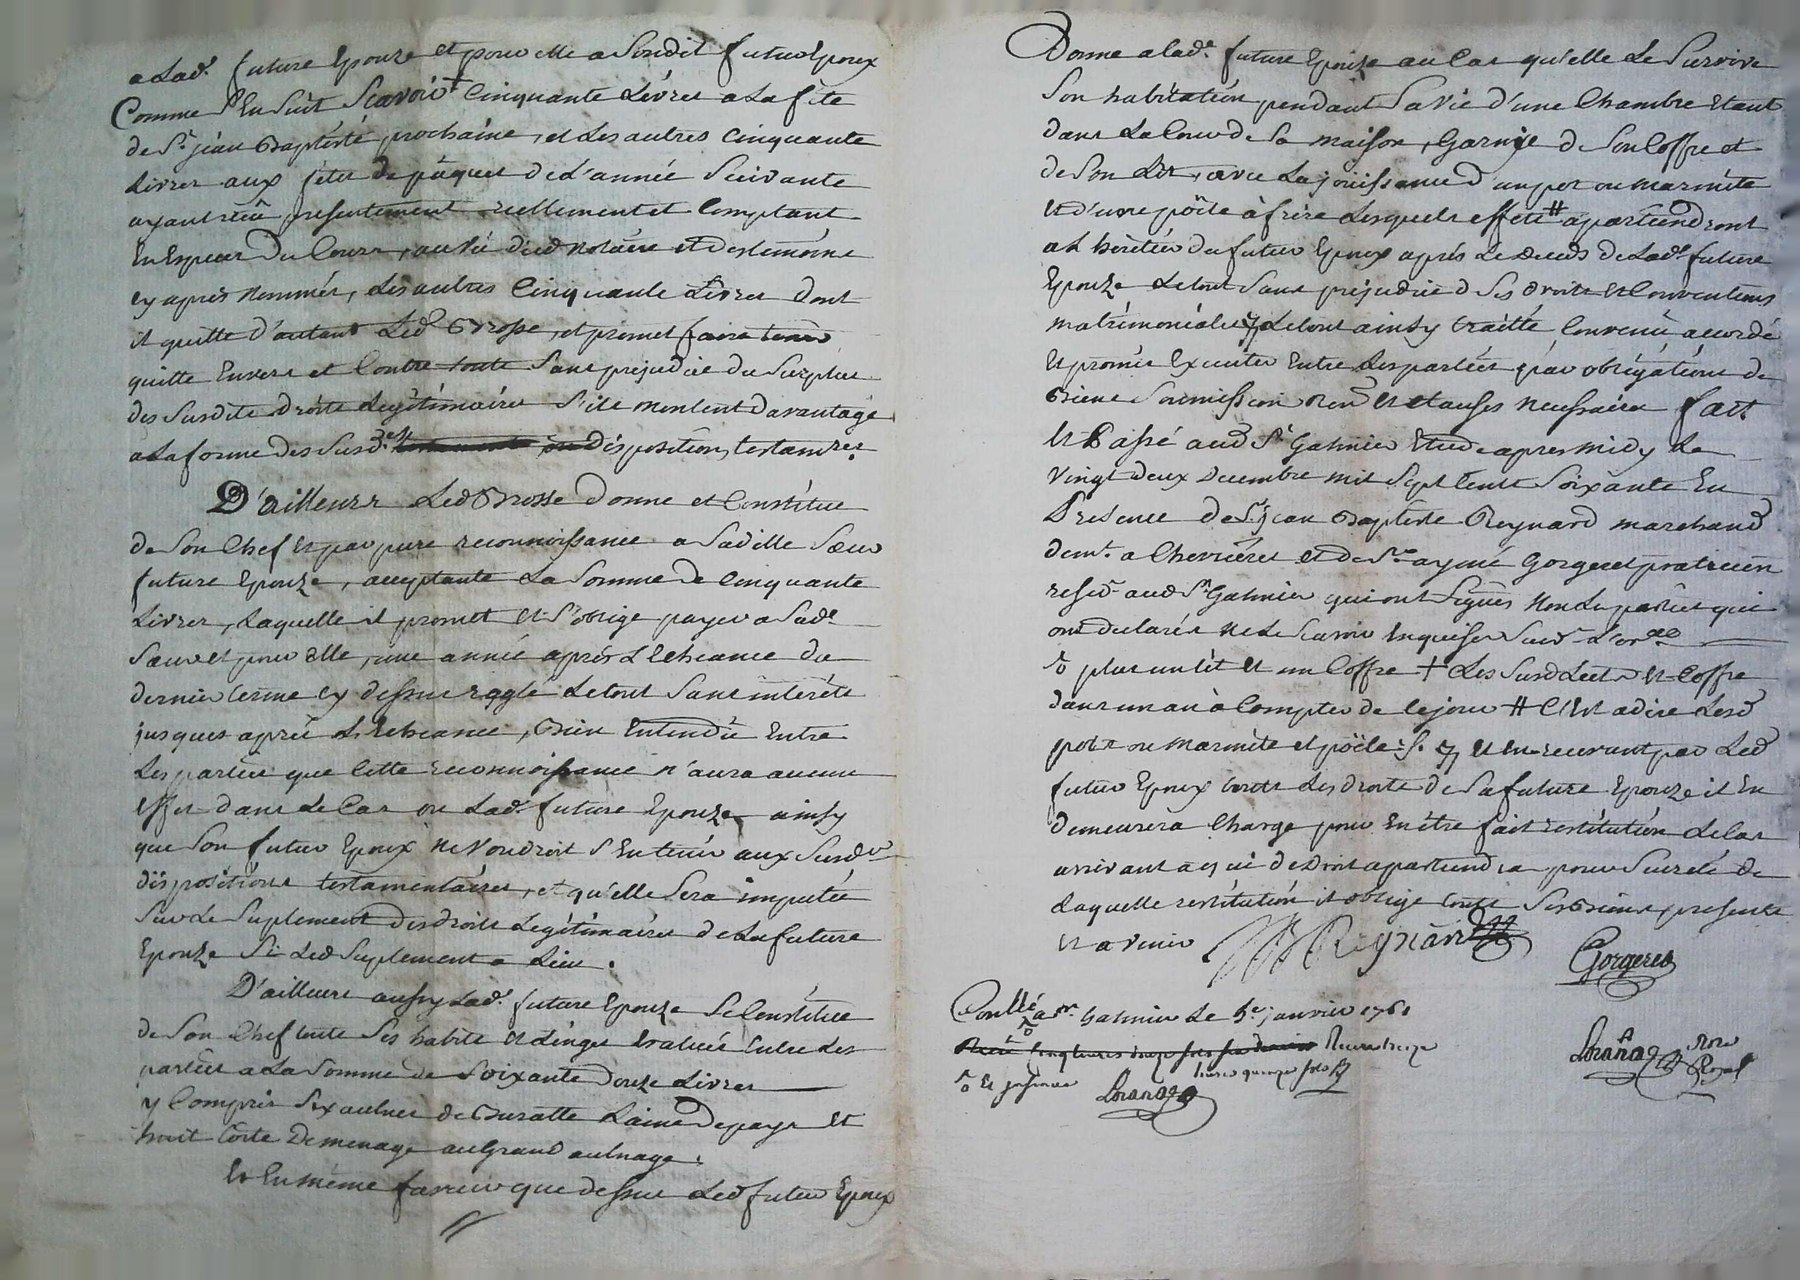 a Lad.e future Epouze et pour elle a Sondit futur Epoux
Comme S'En Suit Scavoir + Cinquante Livres a La fête
de St jean Baptiste prochaine, et Les autres Cinquante
Livres aux fêtes de pâques de L'année Suivante
ayant reçû presentement reellement et Comptant
En Espèces du Cours, au vû dud Notaire et des temoins
Cy après Nommés, Les autres Cinquante Livres dont
il quitte d'autant Led Brosse, et promet faire tenir
quitte Envers et Contre toute Sans prejudice du Surplus
des Susdits droits Legitimaires S'ils montent davantage
a La forme des Susd.es dispositions, testam.res
D'ailleurs Led Brosse Donne et Constitue
de Son Chef et par pure reconnoissance a Sadite Sœur
future Epouze, acceptante La Somme de Cinquante
Livres, Laquelle il promet et S'oblige payer a Sad.e
Sœur et pour Elle, une année après L'Echeance du
dernier terme Cy dessus reglé Le tout Sans intérêts
jusques après L'Echeance, Bien Entendû Entre
Les parties que Cette reconnoissance n'aura aucun
Effet dans Le Cas ou Lad.e future Epouze ainsy
que Son futur Epoux Ne Voudroit S'En tenir aux Susd.es
dispositions testamentaires, et qu'elle Sera imputée
Sur Le Suplement des droits Legitimaires de La future
Epouze Si Led Suplement a Lieu.
D'ailleurs aussy Lad.e future Epouze Se Constitue
de Son Chef toute Ses habits et Linges Evalués Entre Les
parties a La Somme de Soixante Douze Livres
y Compris Six aulnes de Buratte Laine de pays et
huit toile De menage au Grand aulnage.
Et En même faveur que dessus Led futur Epoux
Donne a Lad.e future Epouze au Cas qu'elle Le Survive
Son habitation pendant Sa Vie d'une Chambre Etant
dans La Cour de Sa maison, Garnie de Son Coffre et
de Son Lit, avec La jouissance d'un pot ou marmite
Et d'une poêle à frire Lesquels effets # apartiendront
a L'heritier du futur Epoux après Le deceds de Lad.e future
Epouze Le tout Sans prejudice de Ses droits et Conventions
matrimoniales Le tout ainsy traitté Convenû accordé
Et promis Executer Entre Les parties par obligations de
Biens Soumission Ren.on et Clauses Necessaires fait
Et Passé aud St Galmier Etude apres midy Le
Vingt deux Decembre mil Sept Cents Soixante En
Presence de Sr jean Baptiste Reynard marchand
dem.t a Chevrières et de Sr aymé Gorgeret praticien
resid.t aud St Galmier qui ont Signés Non Les parties qui
ont declarés Ne Le Scavoir Enquises Suiv.t L'or.ce
plus un Lit et un Coffre + Les Susd Lit et Coffre
dans un an à Compter de Ce jour # C'Est a dire Lesd
pot ou marmite et poële Et En recevant par Led
futur Epoux touts Les droits de Sa future Epouze il En
demeurera Chargé pour En être fait restitution Le Cas
arrivant a qui de Droit apartiendra, pour Sureté de
Laquelle restitution il oblige touts Ses Biens presents
Et a Venir JB Reynard
Gorgeret
Con.llé a St Galmier Le 5.e janvier 1761
Recu Cinq Livres douze sols
Livres quinze sols